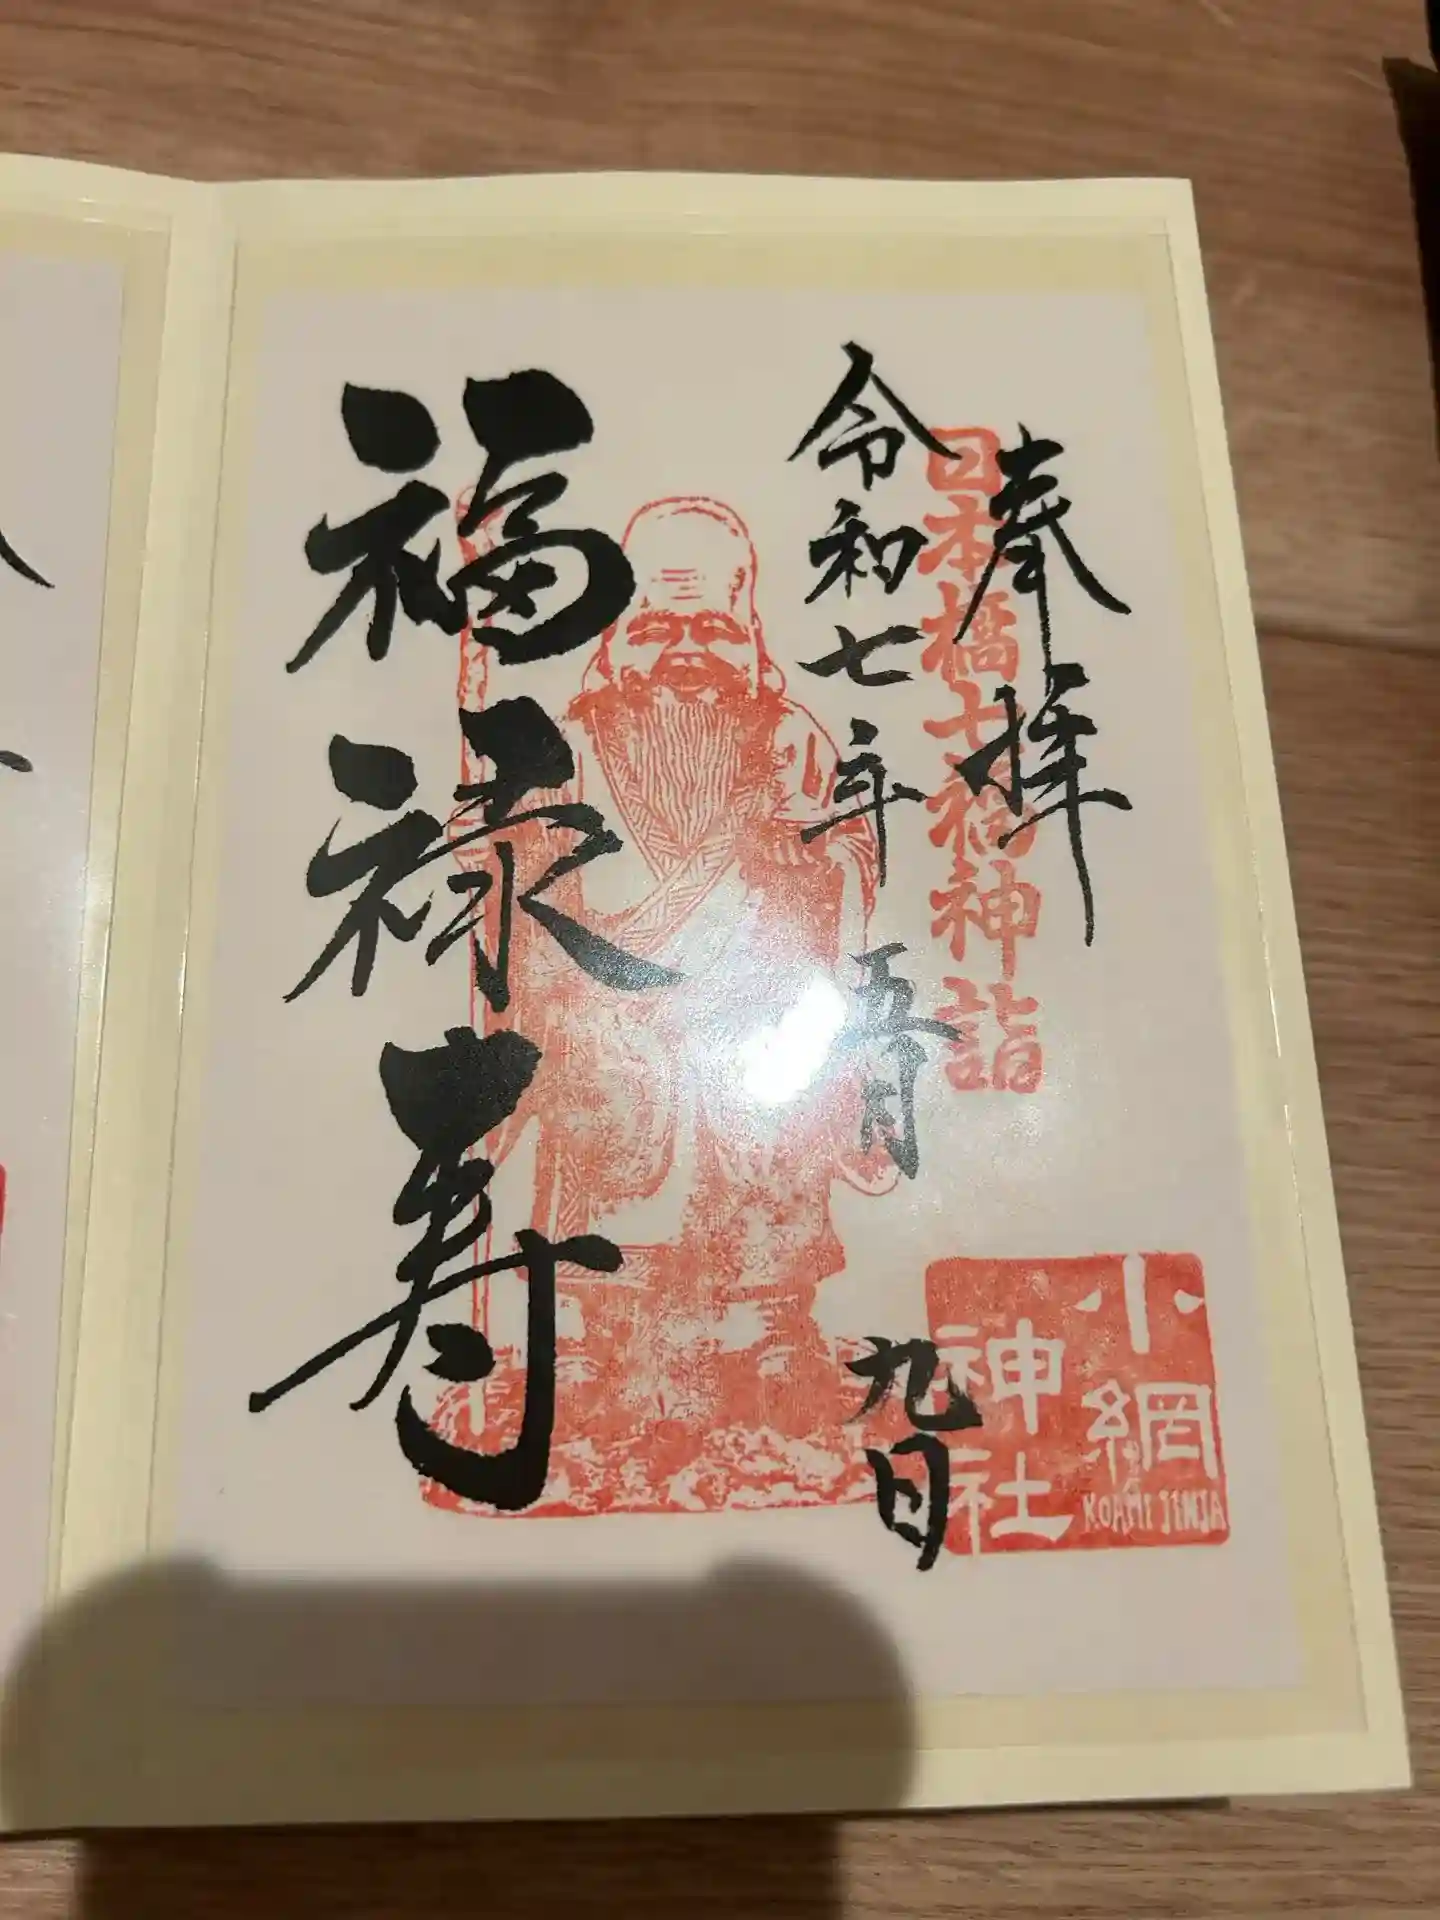 奉拝
日本橋七福神詣
令和七年五月九日
福禄寿
小網
神社
KOAMI JINJA